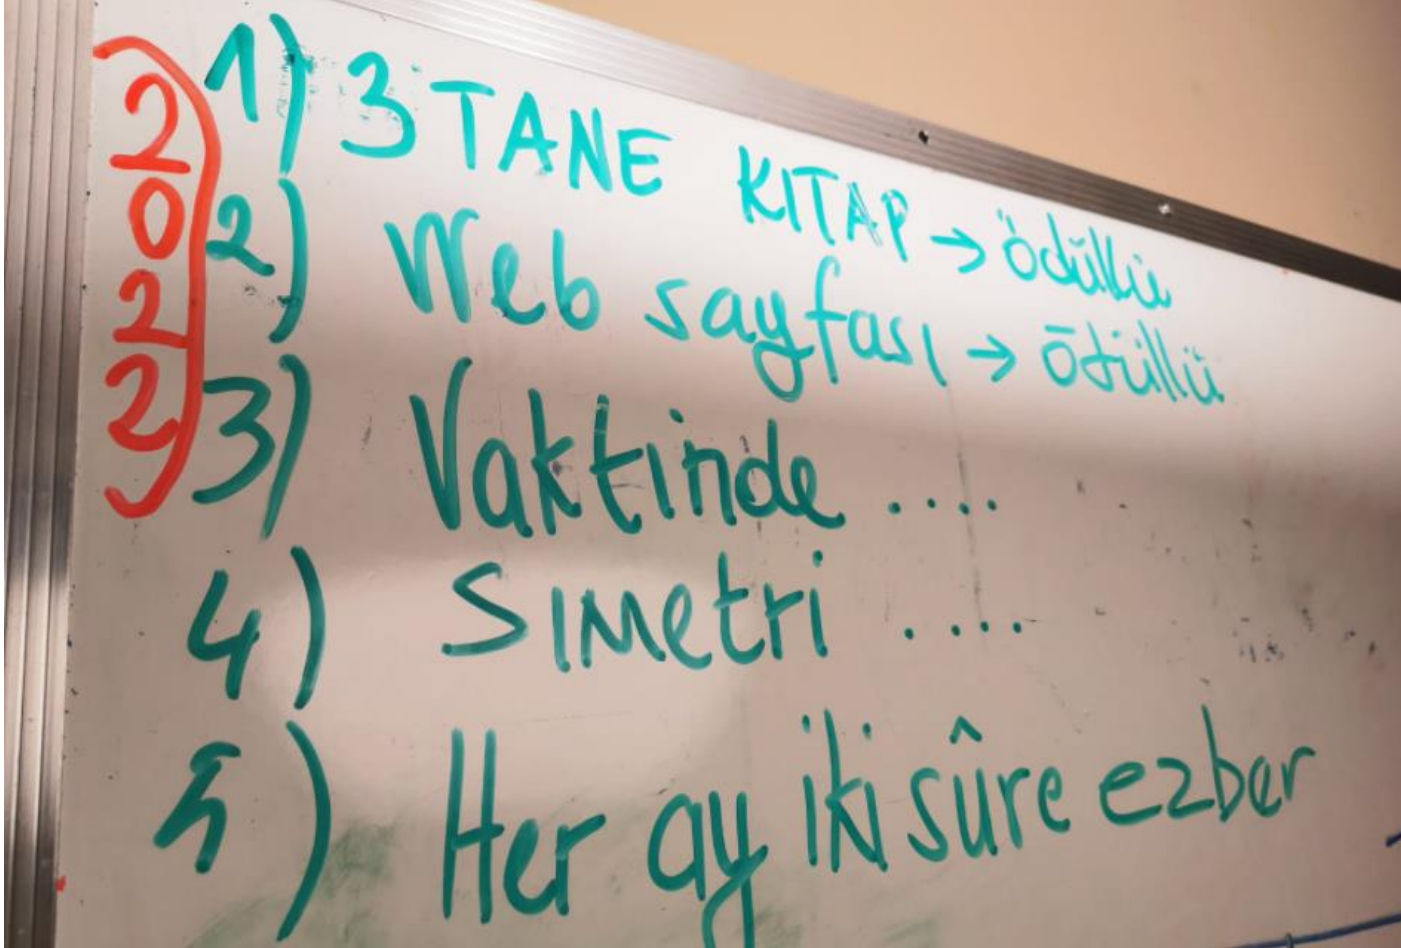 2022
1) 3 TANE KITAP → ödüllü
2) Web sayfası → ötüllü
3) Vaktinde ....
4) Sımetri ....
5) Her ay iki sûre ezber